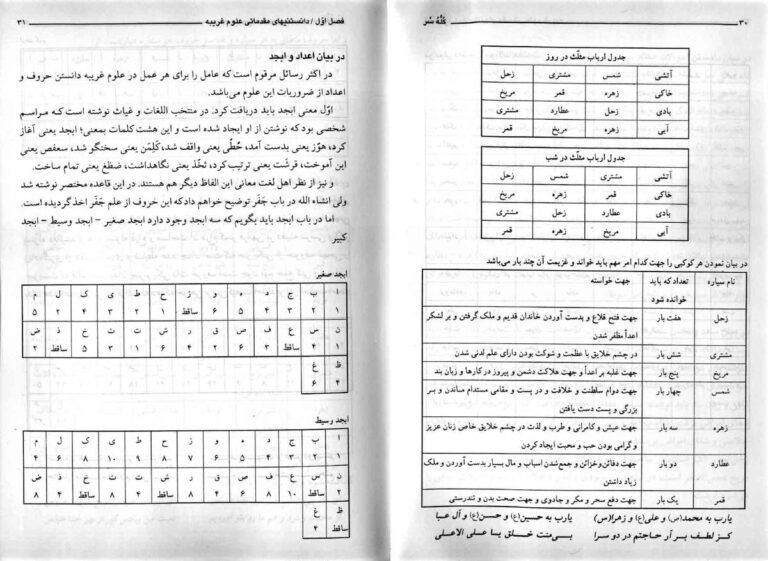 ۳۰ کلّهٔ سَر
جدول ارباب مثلّث در روز
آتشی شمس مشتری زحل
خاکی زهره قمر مریخ
بادی زحل عطارد مشتری
آبی زهره مریخ قمر
جدول ارباب مثلّث در شب
آتشی مشتری شمس زحل
خاکی قمر زهره مریخ
بادی عطارد زحل مشتری
آبی مریخ زهره قمر
در بیان نمودن هر کوکبی را جهت کدام امر مهم باید خواند و عزیمت آن چند بار می‌باشد
نام سیاره تعدادکه باید خوانده شود جهت خواسته
زحل هفت بار جهت فتح قلاع و بدست آوردن خاندان قدیم و ملک گرفتن و بر لشکر
اعدأ مظفر شدن
مشتری شش بار در چشم خلایق با عظمت و شوکت بودن دارای علم لدنی شدن
مریخ پنج بار جهت غلبه بر اعدأ و جهت هلاکت دشمن و پیروز در کارها و زبان بند
شمس چهار بار جهت دوام سلطنت و خلافت و در پست و مقامی مستدام ماندن و بر
بزرگی و پست دست یافتن
زهره سه بار جهت عیش و کامرانی و طرب و لذت در چشم خلایق خاص زنان عزیز
و گرامی بودن حب و محبت ایجاد کردن
عطارد دو بار جهت دفائن‌وخزائن و جمع‌شدن اسباب و مال بسیار بدست آوردن و ملک
زیاد داشتن
قمر یک بار جهت دفع سحر و مکر و جادوی و جهت صحت بدن و تندرستی
یارب به محمد(ص) و علی(ع) و زهرا(س) یارب به حسین(ع) و حسن(ع) و آل عبا
کز لطف بر آر حاجتم در دو سرا بی‌منت خلق یا علی الاعلی
فصل اوّل / دانستنیهای مقدماتی علوم غریبه ۳۱
در بیان اعداد و ابجد
در اکثر رسائل مرقوم است که عامل را برای هر عمل در علوم غریبه دانستن حروف و
اعداد از ضروریات این علوم می‌باشد.
اوّل معنی ابجد باید دریافت کرد. در منتخب اللغات و غیاث نوشته است کـه مـراسـم
شخصی بود که نوشتن از او ایجاد شده است و این هشت کلمات بمعنی؛ ابجد یعنی آغاز
کرد، هوّز یعنی بدست آمد، حُطّی یعنی واقف شد، کَلِمَن یعنی سخنگو شد، سعفص یعنی
این آموخت، قرشَت یعنی ترتیب کرد، ثخّذ یعنی نگاهداشت، ضظغ یعنی تمام ساخت.
و نیز از نظر اهل لغت معانی این الفاظ دیگر هم هستند. در این قاعده مختصر نوشته شد
ولی انشاء الله در باب جَفَر توضیح خواهم دادکه این حروف از علم جَفَر اخذ گردیده است.
اما در باب ابجد باید بگویم که سه ابجد وجود دارد ابجد صغیر - ابجد وسیط - ابجد
کبیر
ابجد صغیر
ا ب ج د ه و ز ح ط ی ک ل م
۱ ۲ ۳ ۴ ۵ ۶ ساقط ۱ ۲ ۳ ۴ ۲ ۵
ن س ع ف ص ق ر ش ت ث خ ذ ض
۱ ۴ ساقط ۳ ۶ ۲ ۴ ۶ ۱ ۳ ۵ ساقط ۲
ظ غ
۴ ۶
ابجد وسیط
ا ب ج د ه و ز ح ط ی ک ل م
۱ ۲ ۳ ۴ ۵ ۶ ۷ ۸ ۹ ۱۰ ۸ ۶ ۴
ن س ع ف ص ق ر ش ت ث خ ذ ض
۲ ساقط ۱۰ ۸ ۶ ۴ ۸ ساقط ۴ ۸ ساقط ۴ ۸
ظ غ
ساقط ۴